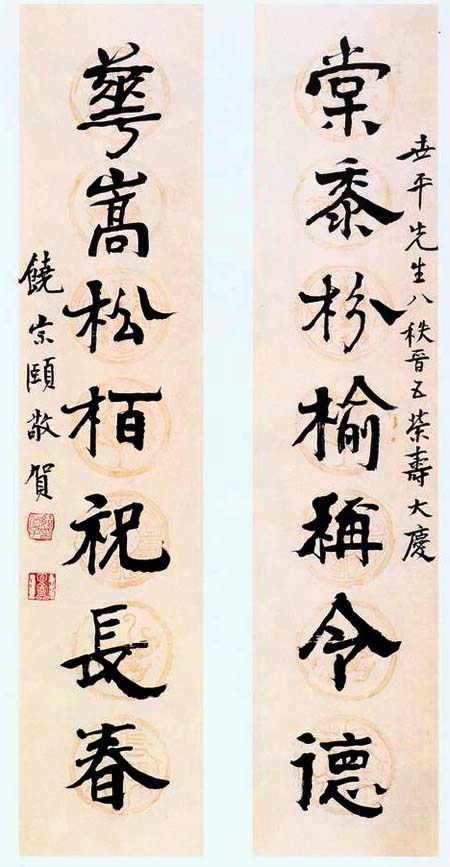 世平先生八秩晉五榮壽大慶
棠黍枌榆稱令德
華嵩松栢祝長春
饒宗頤敬賀